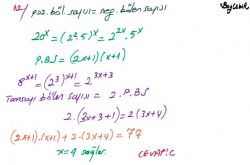 12/ poz. böl. sayısı = neg. bölen sayısı
20^x = (2^2.5)^x = 2^2x.5^x
P.BS = (2x+1)(x+1)
8^x+1 = (2^3)^x+1 = 2^3x+3
Tamsayı bölen sayısı = 2.P.BS
2.(3x+3+1) = 2(3x+4)
(2x+1).(x+1) + 2.(3x+4) = 77
x=4 sağlar.
CEVAP: C